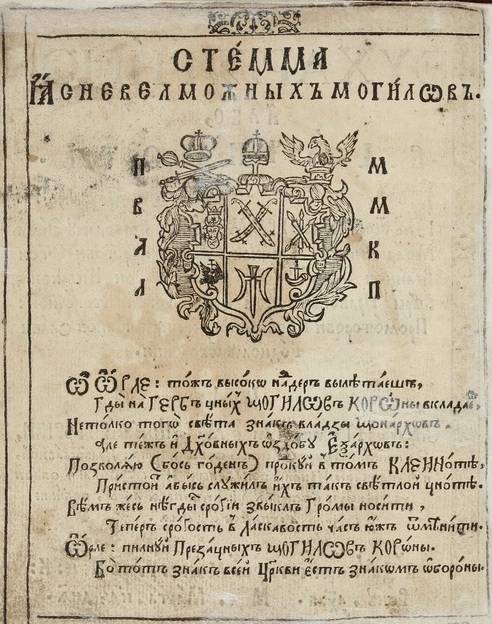 СТЕ́ММА
ꙖСНЕВЕЛМОЖНЫХЪ МОГИ́ЛѠВЪ.
П М
В М
А К
Л П
Ѿ Ѽрле: то́жъ высо́кѡ на́деръ вылѣта́ешъ,
Гды̀ на Гербъ цныхъ МОГИЛѠвъ КОРѠны вклада́е,
Нетолкѡ тогѡ̀ свѣ́та зна́къ вла́дзы Мона́рхѡвъ.
Але те́жъ и҆ Дх҃о́вныхъ ѡ҆здо́бꙋ Е҆ѯа́рхѡвъ:
Позволѧ́ю (бось го́денъ) прокꙋ́й в то́мъ КЛЕЙНо́тѣ,
При́стой а҆бы́сь слꙋжи́лъ и҆́хъ та́къ свѣ́тлой цно́тѣ.
Вѣ́мъ же́сь нѣ́гды сро́гїи звы́клъ Гро́мы носи́ти,
Тепе́ръ сро́гость в Ласка́вость ча́съ ю҆́жъ ѿмѣни́ти.
Ѽрле: пилнꙋ́й Преза́цныхъ МОГИЛѠвъ КОРѠ́ны.
Бо то́тъ зна́къ все́й Цр҃кви е҆́стъ зна́комъ ѡ҆боро́ны.